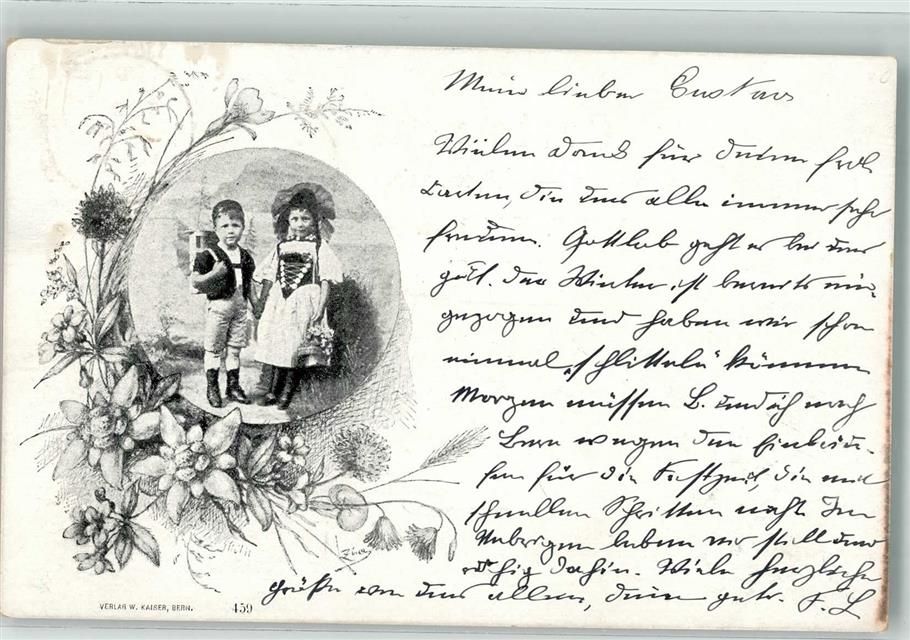 Mein lieber Gustav
Vielen Dank für deine frdl.
Karten, die uns alle immer sehr
freuen. Gottlob geht es bei uns
gut. Der Winter ist bereits ein-
gezogen und haben wir schon
einmal „schlitteln“ können
Morgen müssen L. und ich nach
Bern wegen den Einkäu-
fen für die Festzeit, die mit
schnellen Schritten naht. Im
Uebrigen leben wir still und
ruhig dahin. Viele herzliche
Grüße von uns allen, dein getr. F. L
VERLAG W. KAISER, BERN. 459